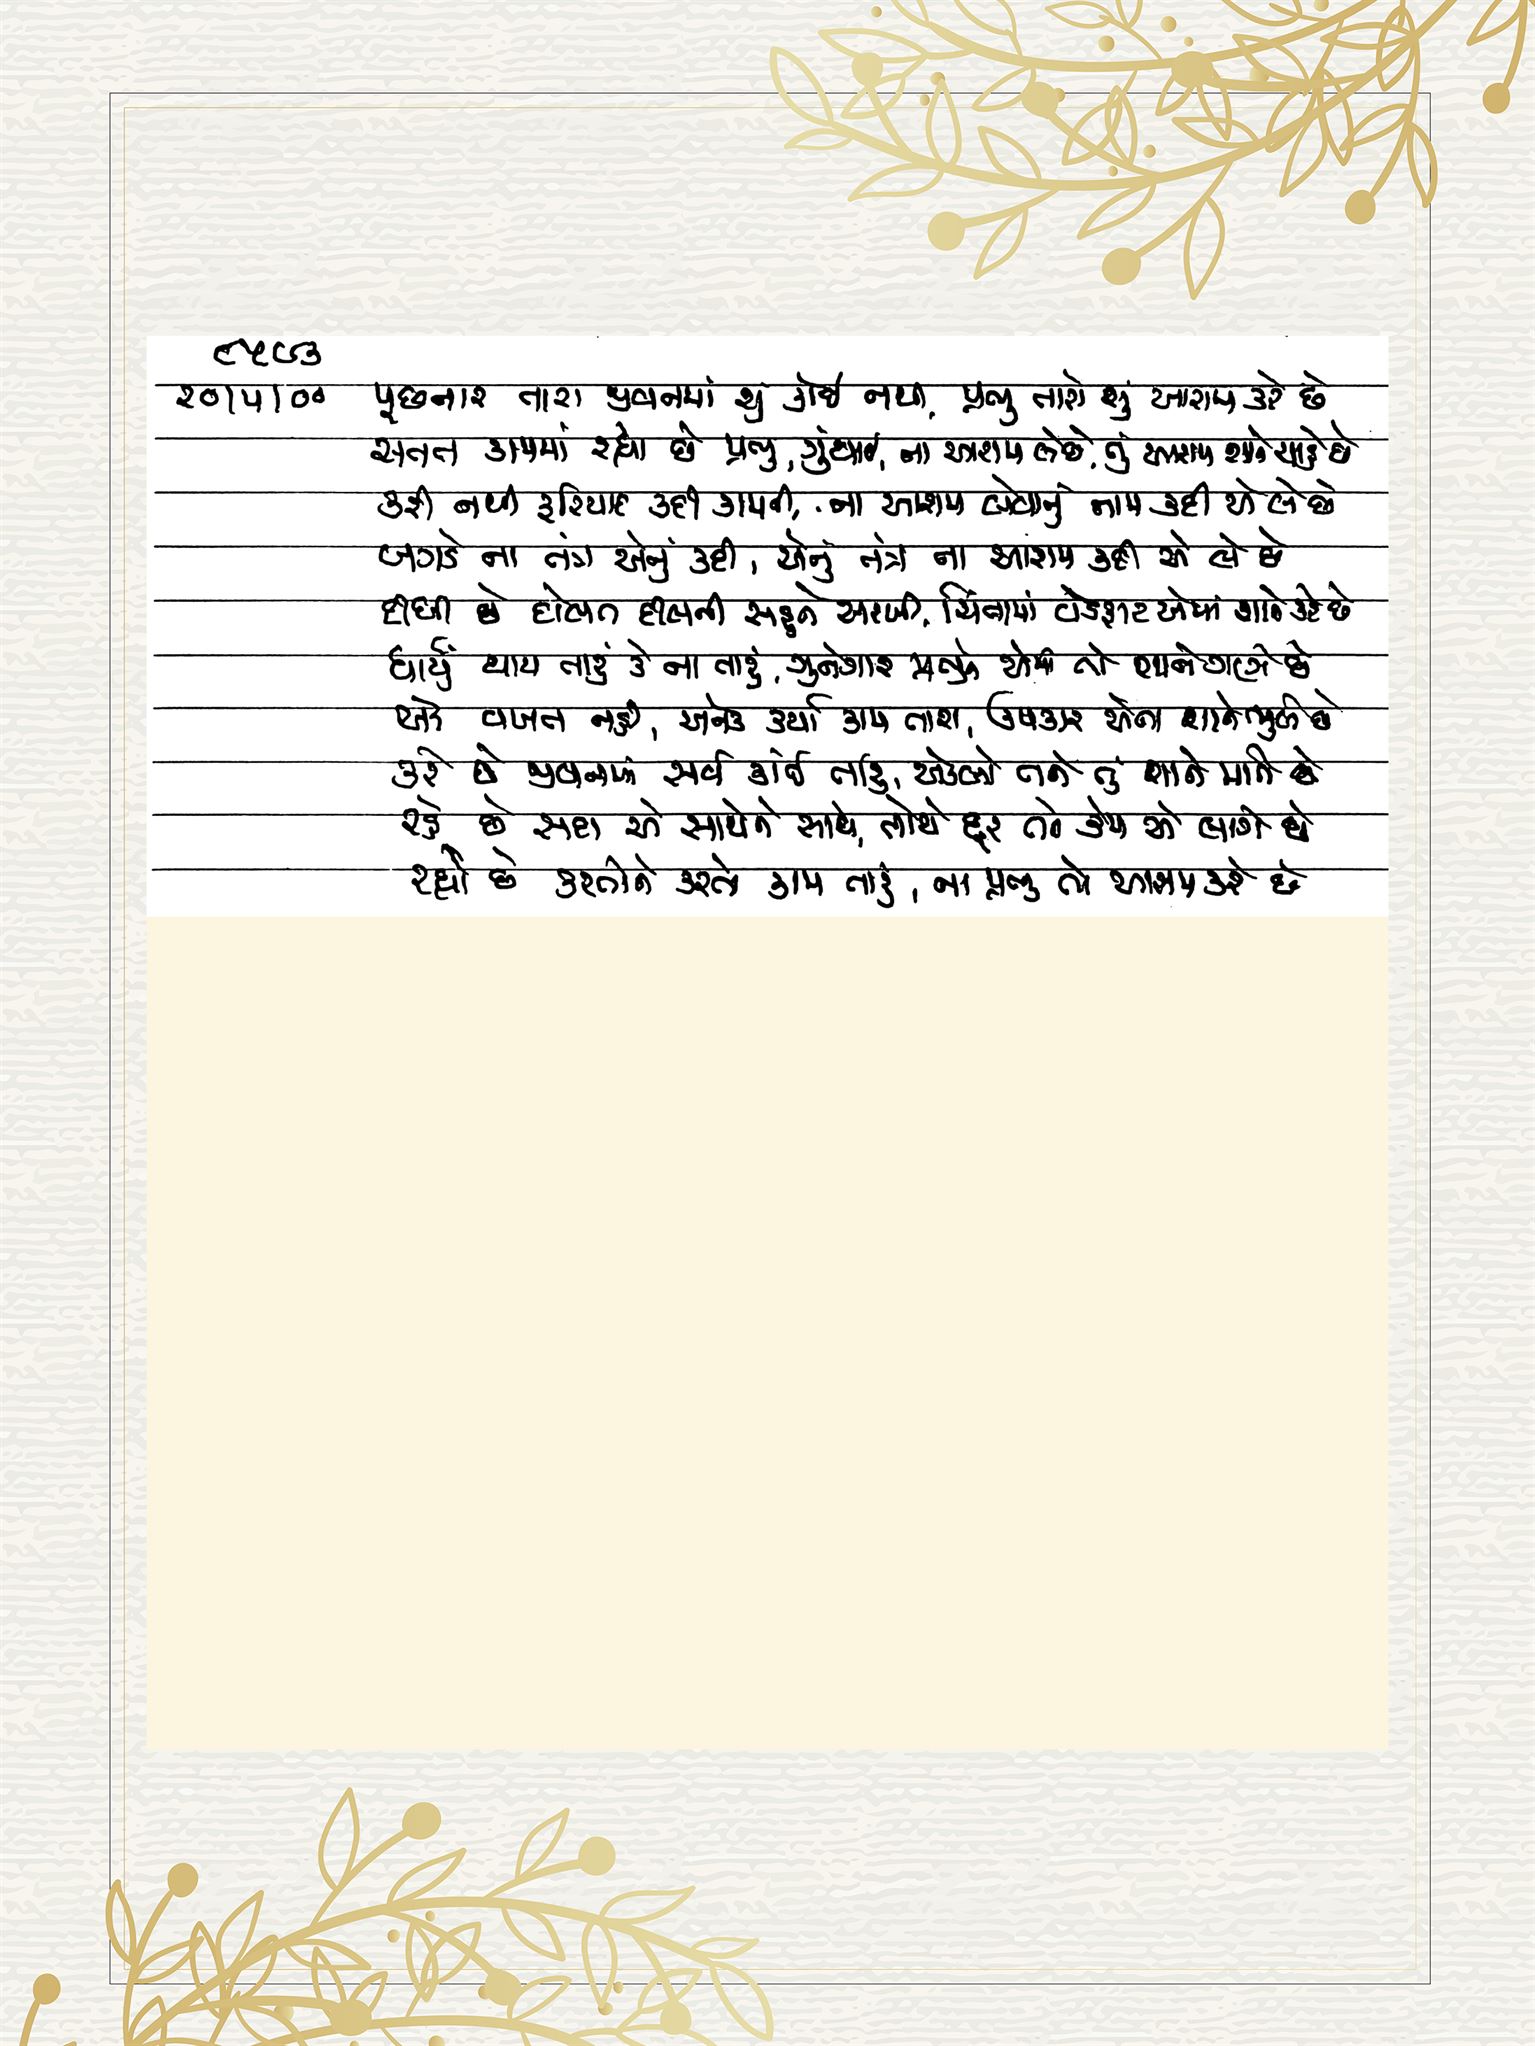 ૮૫૮૩
૨૦/૫/૦૦ પૂછનાર તારા જીવનમાં શું કોઈ નથી, પ્રભુ તારો શું આરામ કરે છે
સતત કામમાં રહ્યા છે પ્રભુ, ના આરામ લે છે, તું આરામ શાને ચાહે છે
કરી નથી ફરિયાદ કદી કામની, ના આરામ લેવાનું નામ કદી એ લે છે
બગડે ના તંત્ર એનું કદી, એનું તંત્ર ના આરામ કદી એ લે છે
દીધી છે દોલત દીલની સહુને સરખી, ચિંતામાં વેડફાટ એમાં શાને કરે છે
ધાર્યું થાય તારું કે ના તારું, ગુનેગાર પ્રભુને એમાં તો શાને ગણે છે
એકે વખત નહીં, અનેક કર્યા કામ તારા, ઉપકાર એના શાને ભુલે છે
કરે છે જીવનમાં સર્વ કાંઈ તારું, એકલો તને તું શાને માને છે
રહે છે સદા એ સાથેને સાથે, તોયે દૂર તને કેમ એ લાગે છે
રહ્યો છે કરતોને કરતો કામ તારું, ના પ્રભુ તો આરામ કરે છે